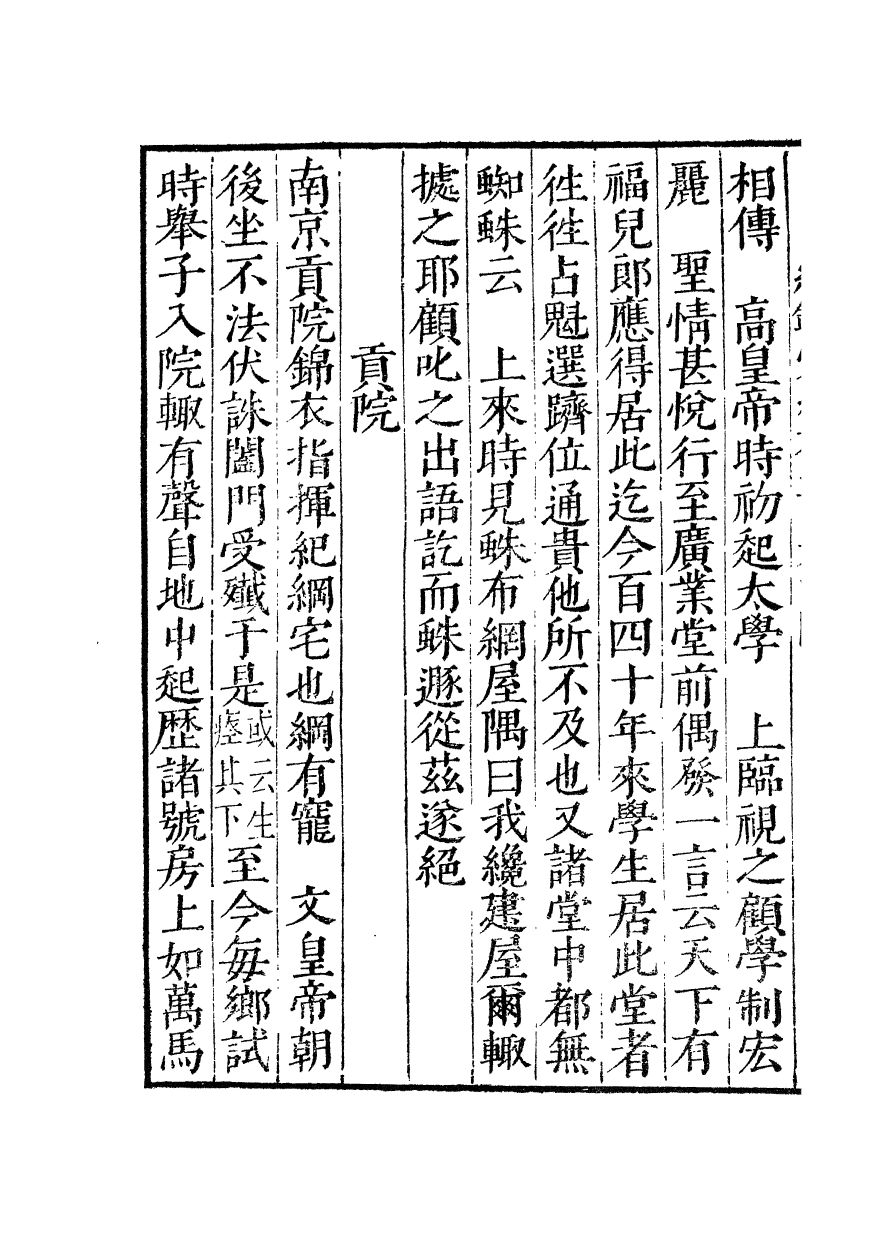 相傳　高皇帝時初起太學　上臨視之顧學制宏
麗　聖情甚悅行至廣業堂前偶發一言云天下有
福兒郎應得居此迄今百四十年來學生居此堂者
徃徃占魁選躋位通貴他所不及也又諸堂中都無
蜘蛛云　上來時見蛛布網屋隅曰我纔建屋爾輙
㨿之耶顧叱之出語訖而蛛遯從茲遂絕
貢院
南京貢院錦衣指揮紀綱宅也綱有寵　文皇帝朝
後坐不法伏誅闔門受殲于是或云生瘞其下至今每鄉試
時舉子入院輙有聲自地中起歴諸號房上如萬馬